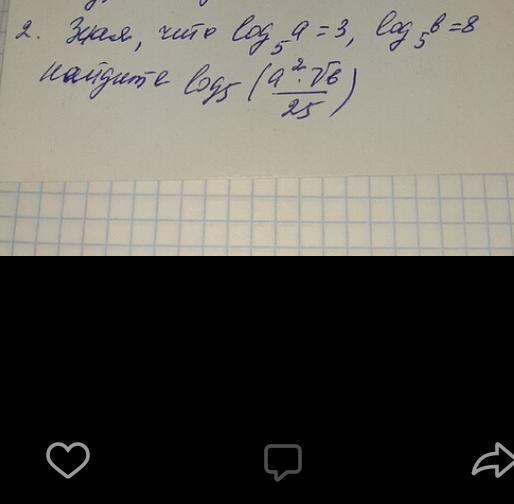 2. Зная, что log₅a = 3, log₅b = 8
найдите log₅ (a² · √b / 25)